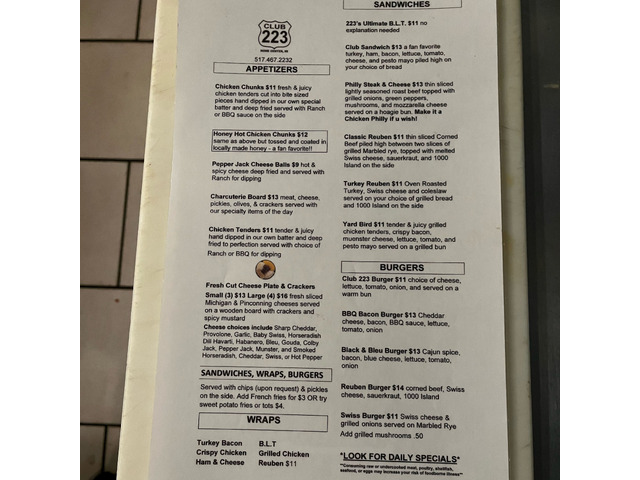 CLUB
223
517.467.2232
APPETIZERS
Chicken Chunks $11 fresh & juicy
chicken tenders cut into bite sized
pieces hand dipped in our own special
batter and deep fried served with Ranch
or BBQ sauce on the side
Honey Hot Chicken Chunks $12
same as above but tossed and coated in
locally made honey - a fan favorite!!
Pepper Jack Cheese Balls $9 hot &
spicy cheese deep fried and served with
Ranch for dipping
Charcuterie Board $13 meat, cheese,
pickles, olives, & crackers served with
our specialty items of the day
Chicken Tenders $11 tender & juicy
hand dipped in our own batter and deep
fried to perfection served with choice of
Ranch or BBQ for dipping
Fresh Cut Cheese Plate & Crackers
Small (3) $13 Large (4) $16 fresh sliced
Michigan & Pinconning cheeses served
on a wooden board with crackers and
spicy mustard
Cheese choices include Sharp Cheddar,
Provolone, Garlic, Baby Swiss, Horseradish
Dill Havarti, Habanero, Bleu, Gouda, Colby
Jack, Pepper Jack, Munster, and Smoked
Horseradish, Cheddar, Swiss, or Hot Pepper
SANDWICHES, WRAPS, BURGERS
Served with chips (upon request) & pickles
on the side. Add French fries for $3 OR try
sweet potato fries or tots $4.
WRAPS
Turkey Bacon B.L.T
Crispy Chicken Grilled Chicken
Ham & Cheese Reuben $11
SANDWICHES
223's Ultimate B.L.T. $11 no
explanation needed
Club Sandwich $13 a fan favorite
turkey, ham, bacon, lettuce, tomato,
cheese, and pesto mayo piled high on
your choice of bread
Philly Steak & Cheese $13 thin sliced
lightly seasoned roast beef topped with
grilled onions, green peppers,
mushrooms, and mozzarella cheese
served on a hoagie bun. Make it a
Chicken Philly if u wish!
Classic Reuben $11 thin sliced Corned
Beef piled high between two slices of
grilled Marbled rye, topped with melted
Swiss cheese, sauerkraut, and 1000
Island on the side
Turkey Reuben $11 Oven Roasted
Turkey, Swiss cheese and coleslaw
served on your choice of grilled bread
and 1000 Island on the side
Yard Bird $11 tender & juicy grilled
chicken tenders, crispy bacon,
muenster cheese, lettuce, tomato, and
pesto mayo served on a grilled bun
BURGERS
Club 223 Burger $11 choice of cheese,
lettuce, tomato, onion, and served on a
warm bun
BBQ Bacon Burger $13 Cheddar
cheese, bacon, BBQ sauce, lettuce,
tomato, onion
Black & Bleu Burger $13 Cajun spice,
bacon, blue cheese, lettuce, tomato,
onion
Reuben Burger $14 corned beef, Swiss
cheese, sauerkraut, 1000 Island
Swiss Burger $11 Swiss cheese &
grilled onions served on Marbled Rye
Add grilled mushrooms .50
*LOOK FOR DAILY SPECIALS*
**Consuming raw or undercooked meat, poultry, shellfish,
seafood, or eggs may increase your risk of foodborne illness**